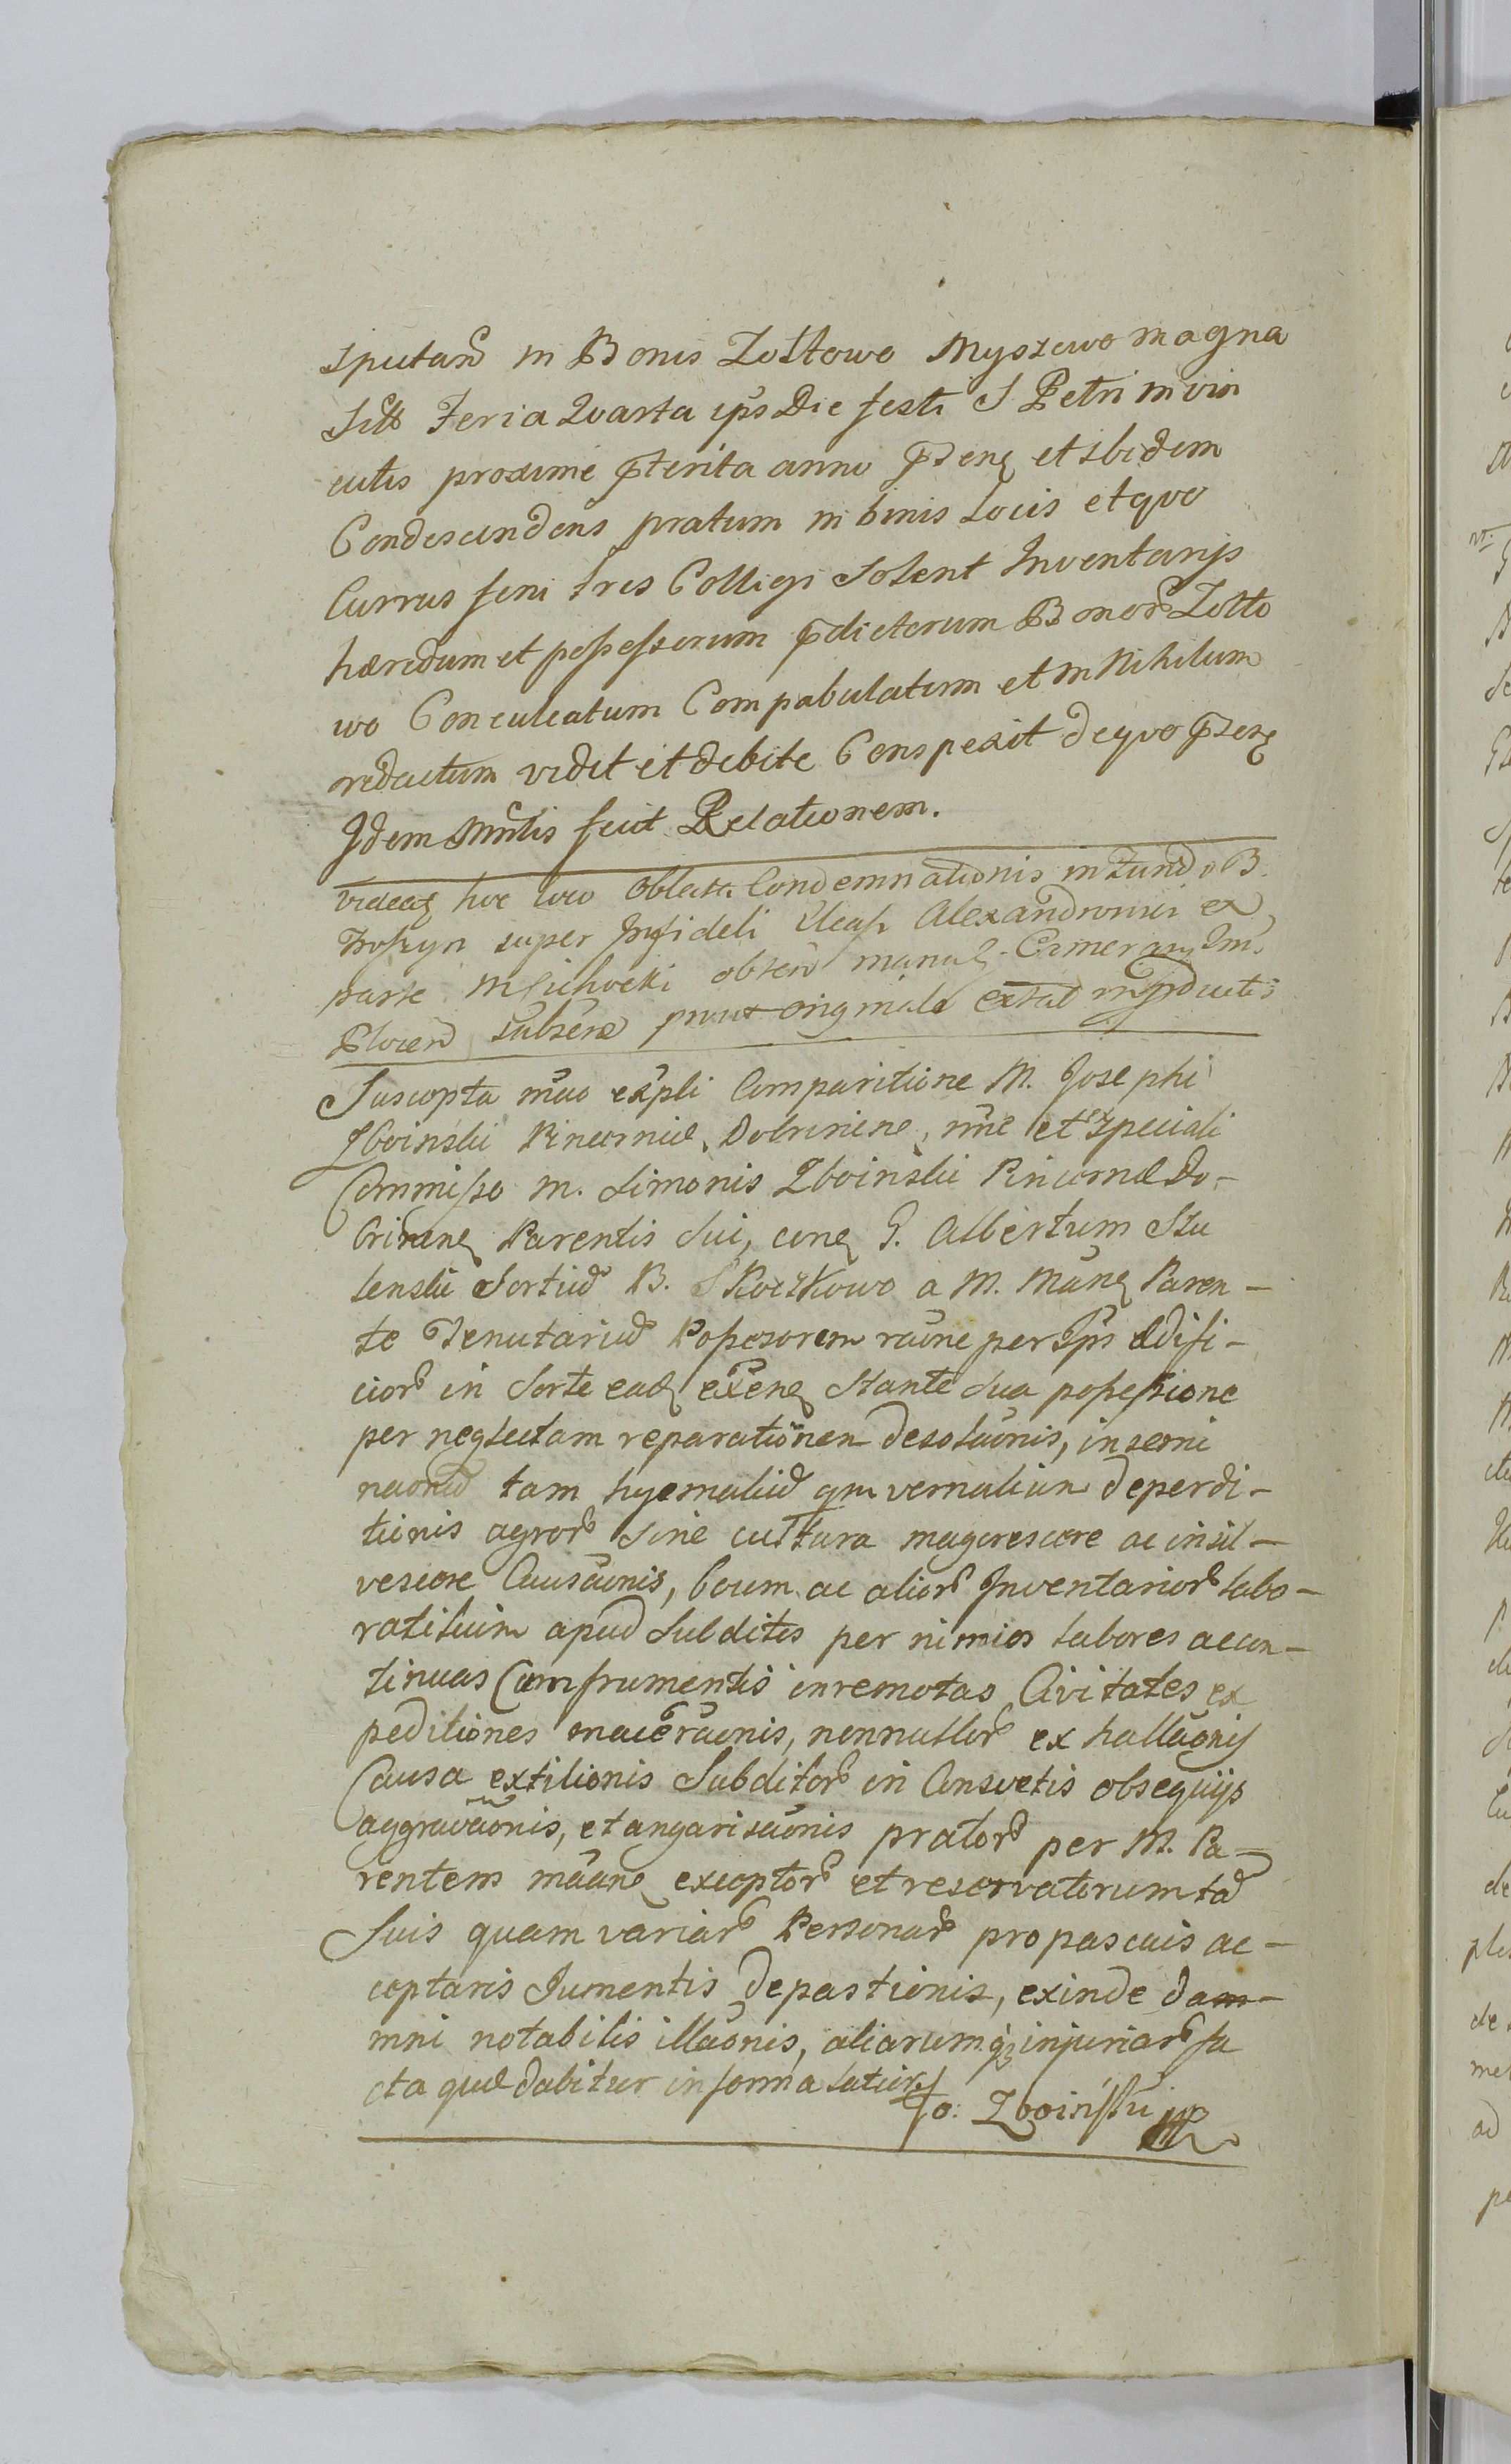 sputand in Bonis Zołtowo Myszewo magna
Sitt Feria Quarta ips Die festi S Petri in vin
culis proxime pterita anni pdenq et ibidem
Condescendens pratum in binis Locis et quo
Currus feni tres Colligi Solent Inventarijs
hæredum et possessorum pdictorum Bonor Zołto
wo Conculcatum Compabulatum et in Nihilum
redactum vidit et debite Conspexit de quo psenq
Idem Mnlis fecit Relationem.
Videatq hoc loco oblata Condemnationis in Fundo B.
Troszyn super Infideli Alexandrowicz ex
parte Michocki obten manuq Camerarij Im
Plocen subscr prout originale extat in pductis
Suscepta mao expli Comparitione M. Josephi
Zboinski Pincerniæ Dobrinene, nne et ex speciali
Commisso M. Simonis Zboinski Pincernæ Do-
brinenq Parentis Sui, conq G. Albertum Stu
lenski Sortiu B. Skoczkowo a M. Manq Paren-
te Tenutariu Possesorem raõne per Ips Ædifi-
cior in Sorte eadq exenq Stante Sua possessione
per neglectam reparationem desolaõnis, insemi
naonu tam hyemaliu qm vernalium deperdi-
tionis agror Sine cultura macrescere ac insil-
vescere Causaõnis, boum ac alior Inventarior labo-
ratilium apud Subditos per nimios labores ac con-
tinuas Cum frumentis in remotas Civitates ex
peditiones maceraonis, nonnullor ex hallaonis
Causa extilionis Subditor in Consvetis obsequijs
aggravaõnis, et angarisaõnis prator per M. Pa-
rentem maanq exceptor et reservatorum tã
Suis quam variar Personar pro pascuis ac-
ceptaris Jumentis depastionis, exinde dam-
mni notabilis illaonis, aliarumq injuriar fa
cta quæ dabitur in forma latiori
Jo: Zboinski mp